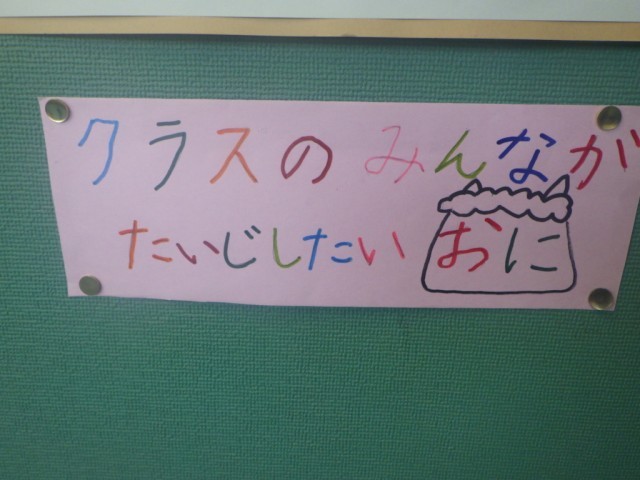 クラスのみんなが
たいじしたいおに